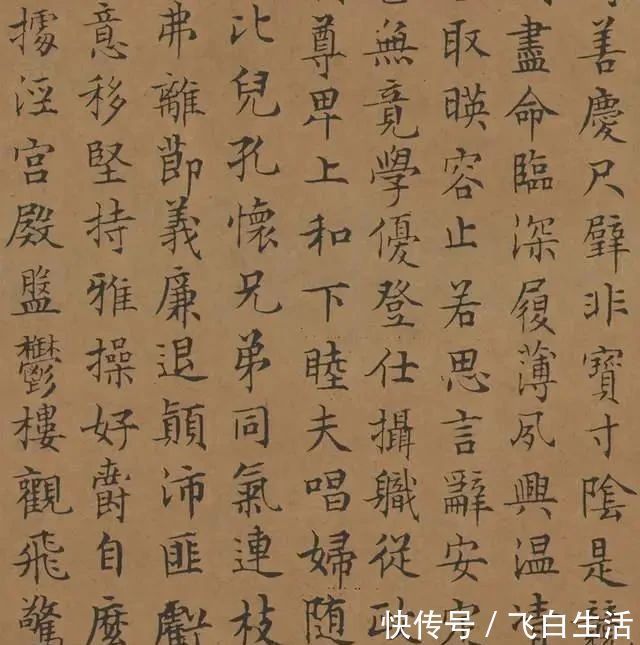 善慶尺璧非寶寸陰是競
盡命臨深履薄夙興温凊
取暎容止若思言辭安定
無竟學優登仕攝職從政
尊卑上和下睦夫唱婦随
比兒孔懷兄弟同氣連枝
弗離節義廉退顛沛匪虧
意移堅持雅操好爵自
據涇宫殿盤鬱樓觀飛驚
快传号 / 飞白生活